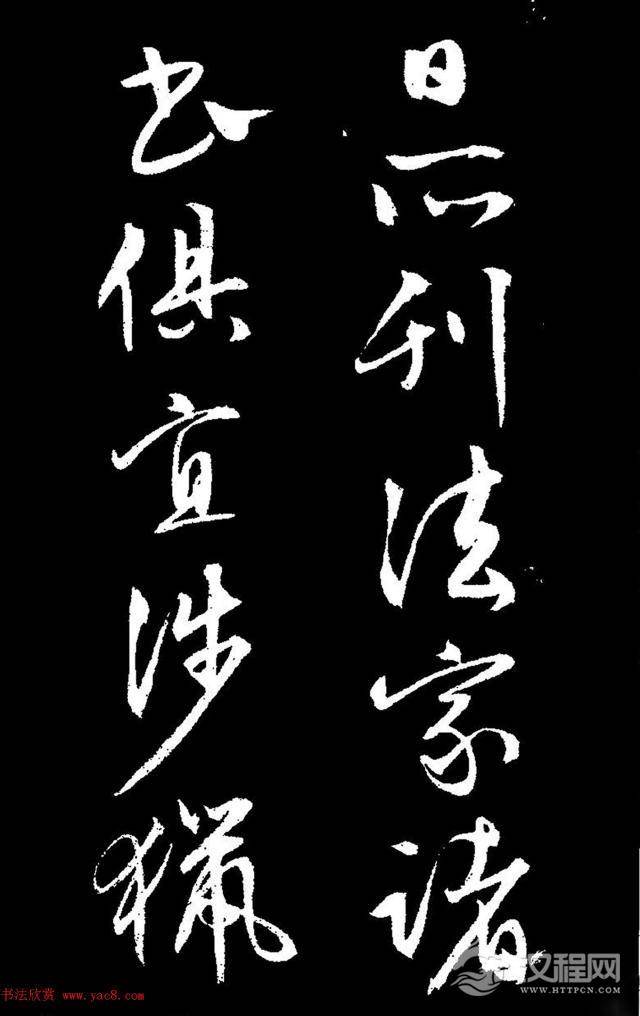 日所刊法家諸
书俱宜涉猟
书法欣赏 www.yac8.com
汉程网
WWW.HTTPCN.COM